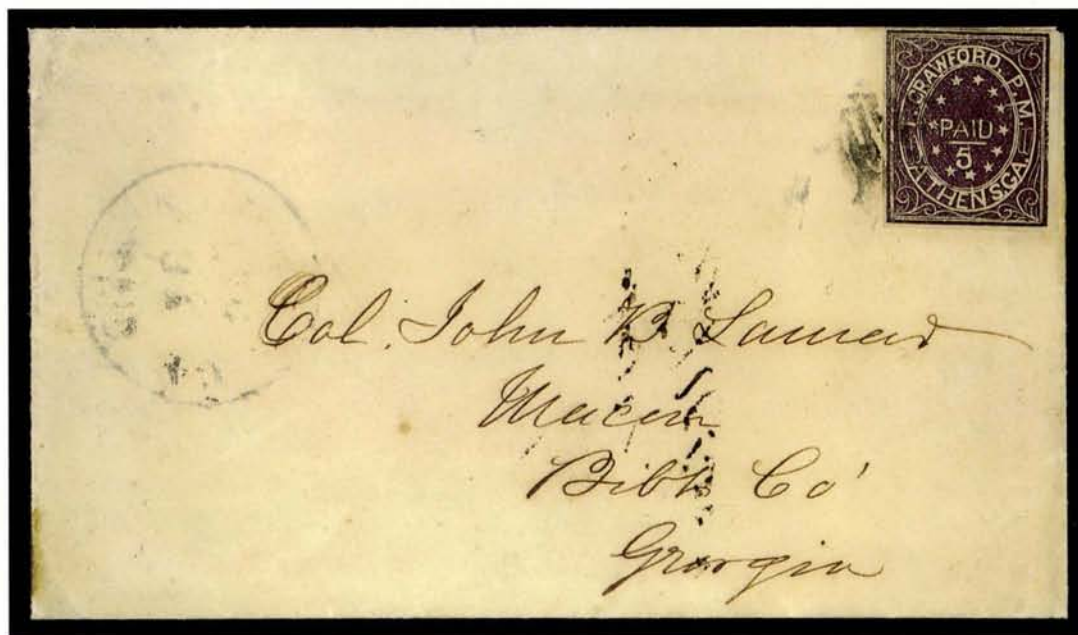 T. CRAWFORD. P. M.
PAID
5
ATHENS. GA.
Col. John B. Lamar
Macon
Bibb Co'
Georgia